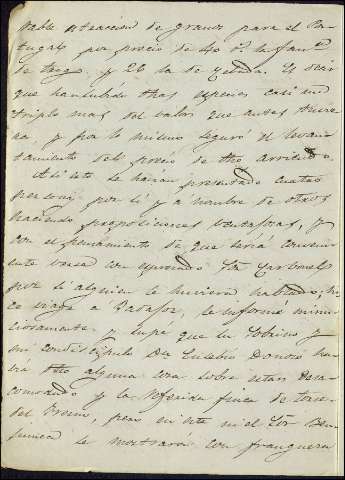 table extraccion de granos para el Por-
tugal por precio de 40 r.s la fan.a
de trigo y 26 la de Cebada. Es decir
que han subido thas especies casi un
triplo mas del valor que antes tenia
y por lo mismo seguró el levan
tamiento del precio de tho arriendo.
A el se le havian presentado cuatro
person.s por si y a nombre de otros
haciendo proposiciones ventajosas, y
con el pensamiento de que seria conveni-
ente verse con Sor Carbonel
por si alguien le huviera hablado, hi
zo viaje a Badajoz, le informé minu
ciosamente y supé que su Sobrino y
mi condiscipulo Dn Eusebio Donoso ha
tho alguna cosa sobre estar
y la referida finca de
del Precio, pero ni este ni el Sor
se mostrará con franqueza